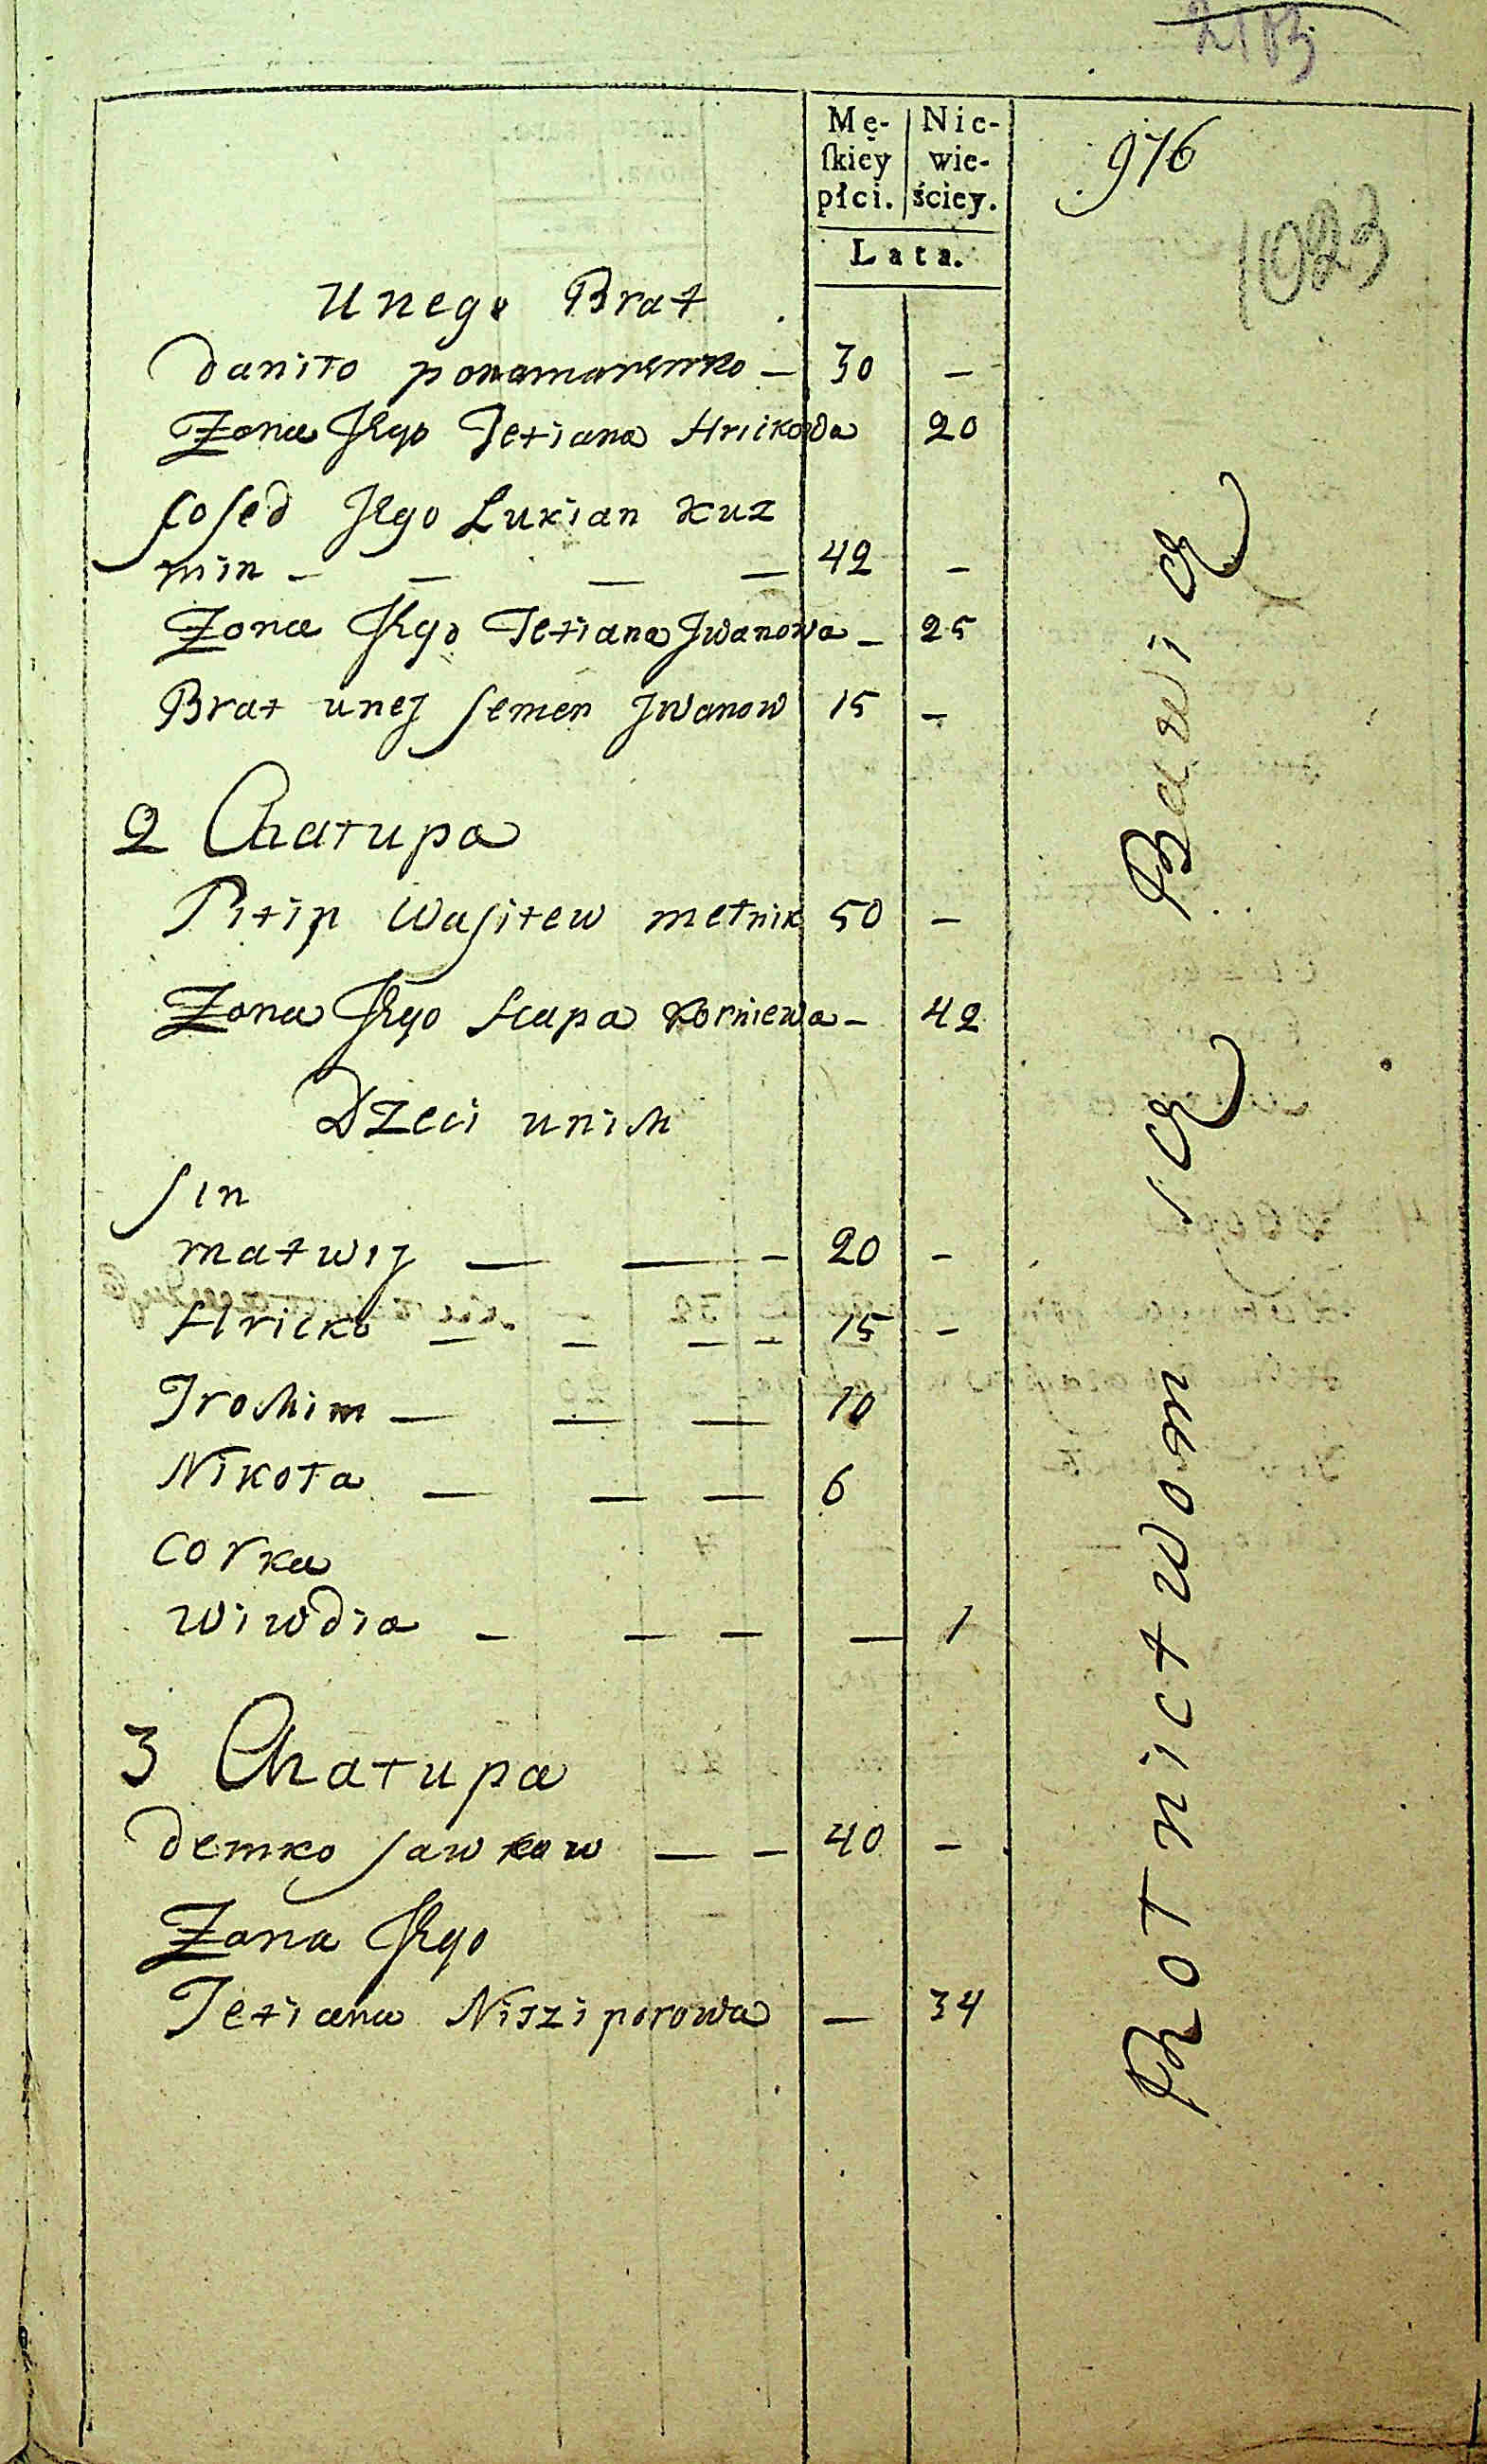 976
1023
Mę- Nie-
ſkiey wie-
płci. ściey.
Lata.
unego Brat
daniło ponomarenko — 30 —
Zona Jego Tetiana Hrickowa 20
soſed Jego Lukian Kuz
min — — — — 42 —
Zona Jego Tetiana Jwanowa — 25
Brat unej ſemen Jwanow 15 —
2 Chałupa
Piłip Waſilew melnik 50 —
Zona Jego Korniewa — 42
Dzeci unich
ſin
matwij — — — 20 —
Hricko — — — — 15 —
Jrochim — — — 10
Nikoła — — — 6
corka
wiwdia — — — — 1
3 Chałupa
demko ſawkow — — 40 —
Zona Jego
Tetiana Niziporowa — 34
Rolnictwom są Bawią